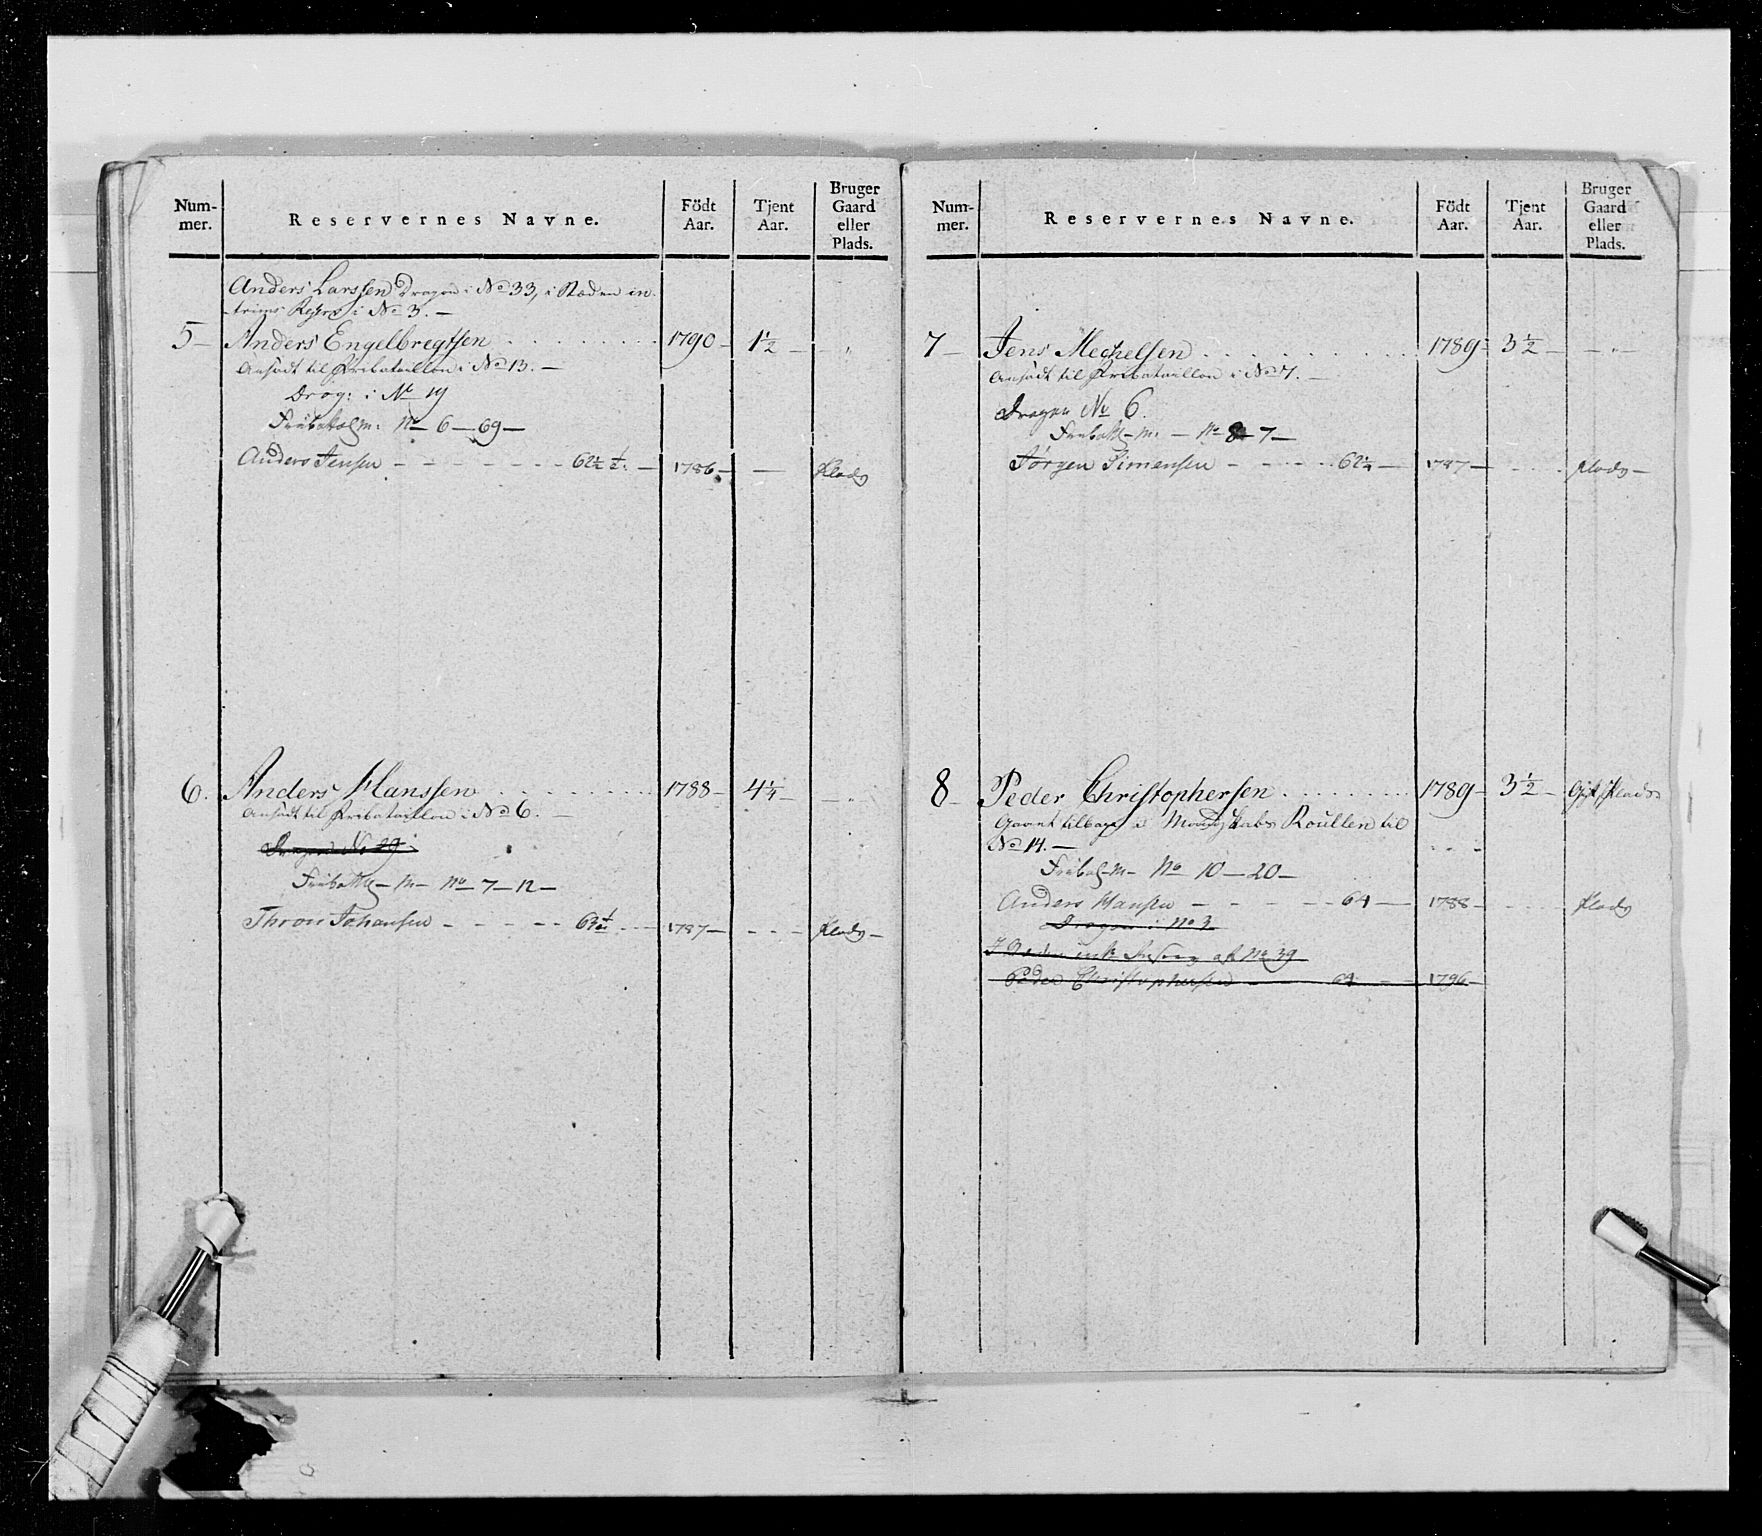 Num-
mer.
Reservernes Navne.
Födt
Aar.
Tjent
Aar.
Bruger
Gaard
eller
Plads.
Anders Larssen Dragon i No 33, i Stæden in-
trims Reserv i No 3. —
5 — Anders Engelbregtsen . . . . . . . . 1790 — 1½ — — „
Ansadt til Fribataillon i No 13. —
Drag: i No 19
Fribat m: No 6 — 69 —
Anders Jensen — — — — — — 62½ — 1786 — — Plads
6. Anders Hanssen . . . . . . . . 1788 — 4¼ — — „
Ansadt til Fribataillon i No 6. —
Dragon No 29
Fribatl — M — No 7 — 12 —
Thron Johansen — — — — — 63 — 1787 — — — — Plads —
Num-
mer.
Reservernes Navne.
Födt
Aar.
Tjent
Aar.
Bruger
Gaard
eller
Plads.
7 — Jens Mechelsen . . . . . . . . 1789 — 3½ — — „ —
Ansadt til Fribataillon i No 7. —
Dragon No 6.
Fribatl — m. — No 8 — 7 —
Jørgen Simensen — — — — 62¼ — 1787 — — — — Plads —
8 — Peder Christophersen . . . . . . 1789 — 3½ — Gift Plads
Gaaet tilbage i Mandskabs Roullen til
No 14. —
Fribat — m — No 10 — 20 —
Anders Hansen — — — — — 64 — 1788 — — — — Plads
Dragon i No 3
af No 39
Peder Christophersen — — — 64 — — 1796 —